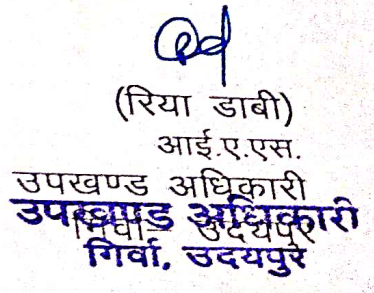 (रिया डाबी)
आई.ए.एस.
उपखण्ड अधिकारी
उपखण्ड अधिकारी
गिर्वा, उदयपुर